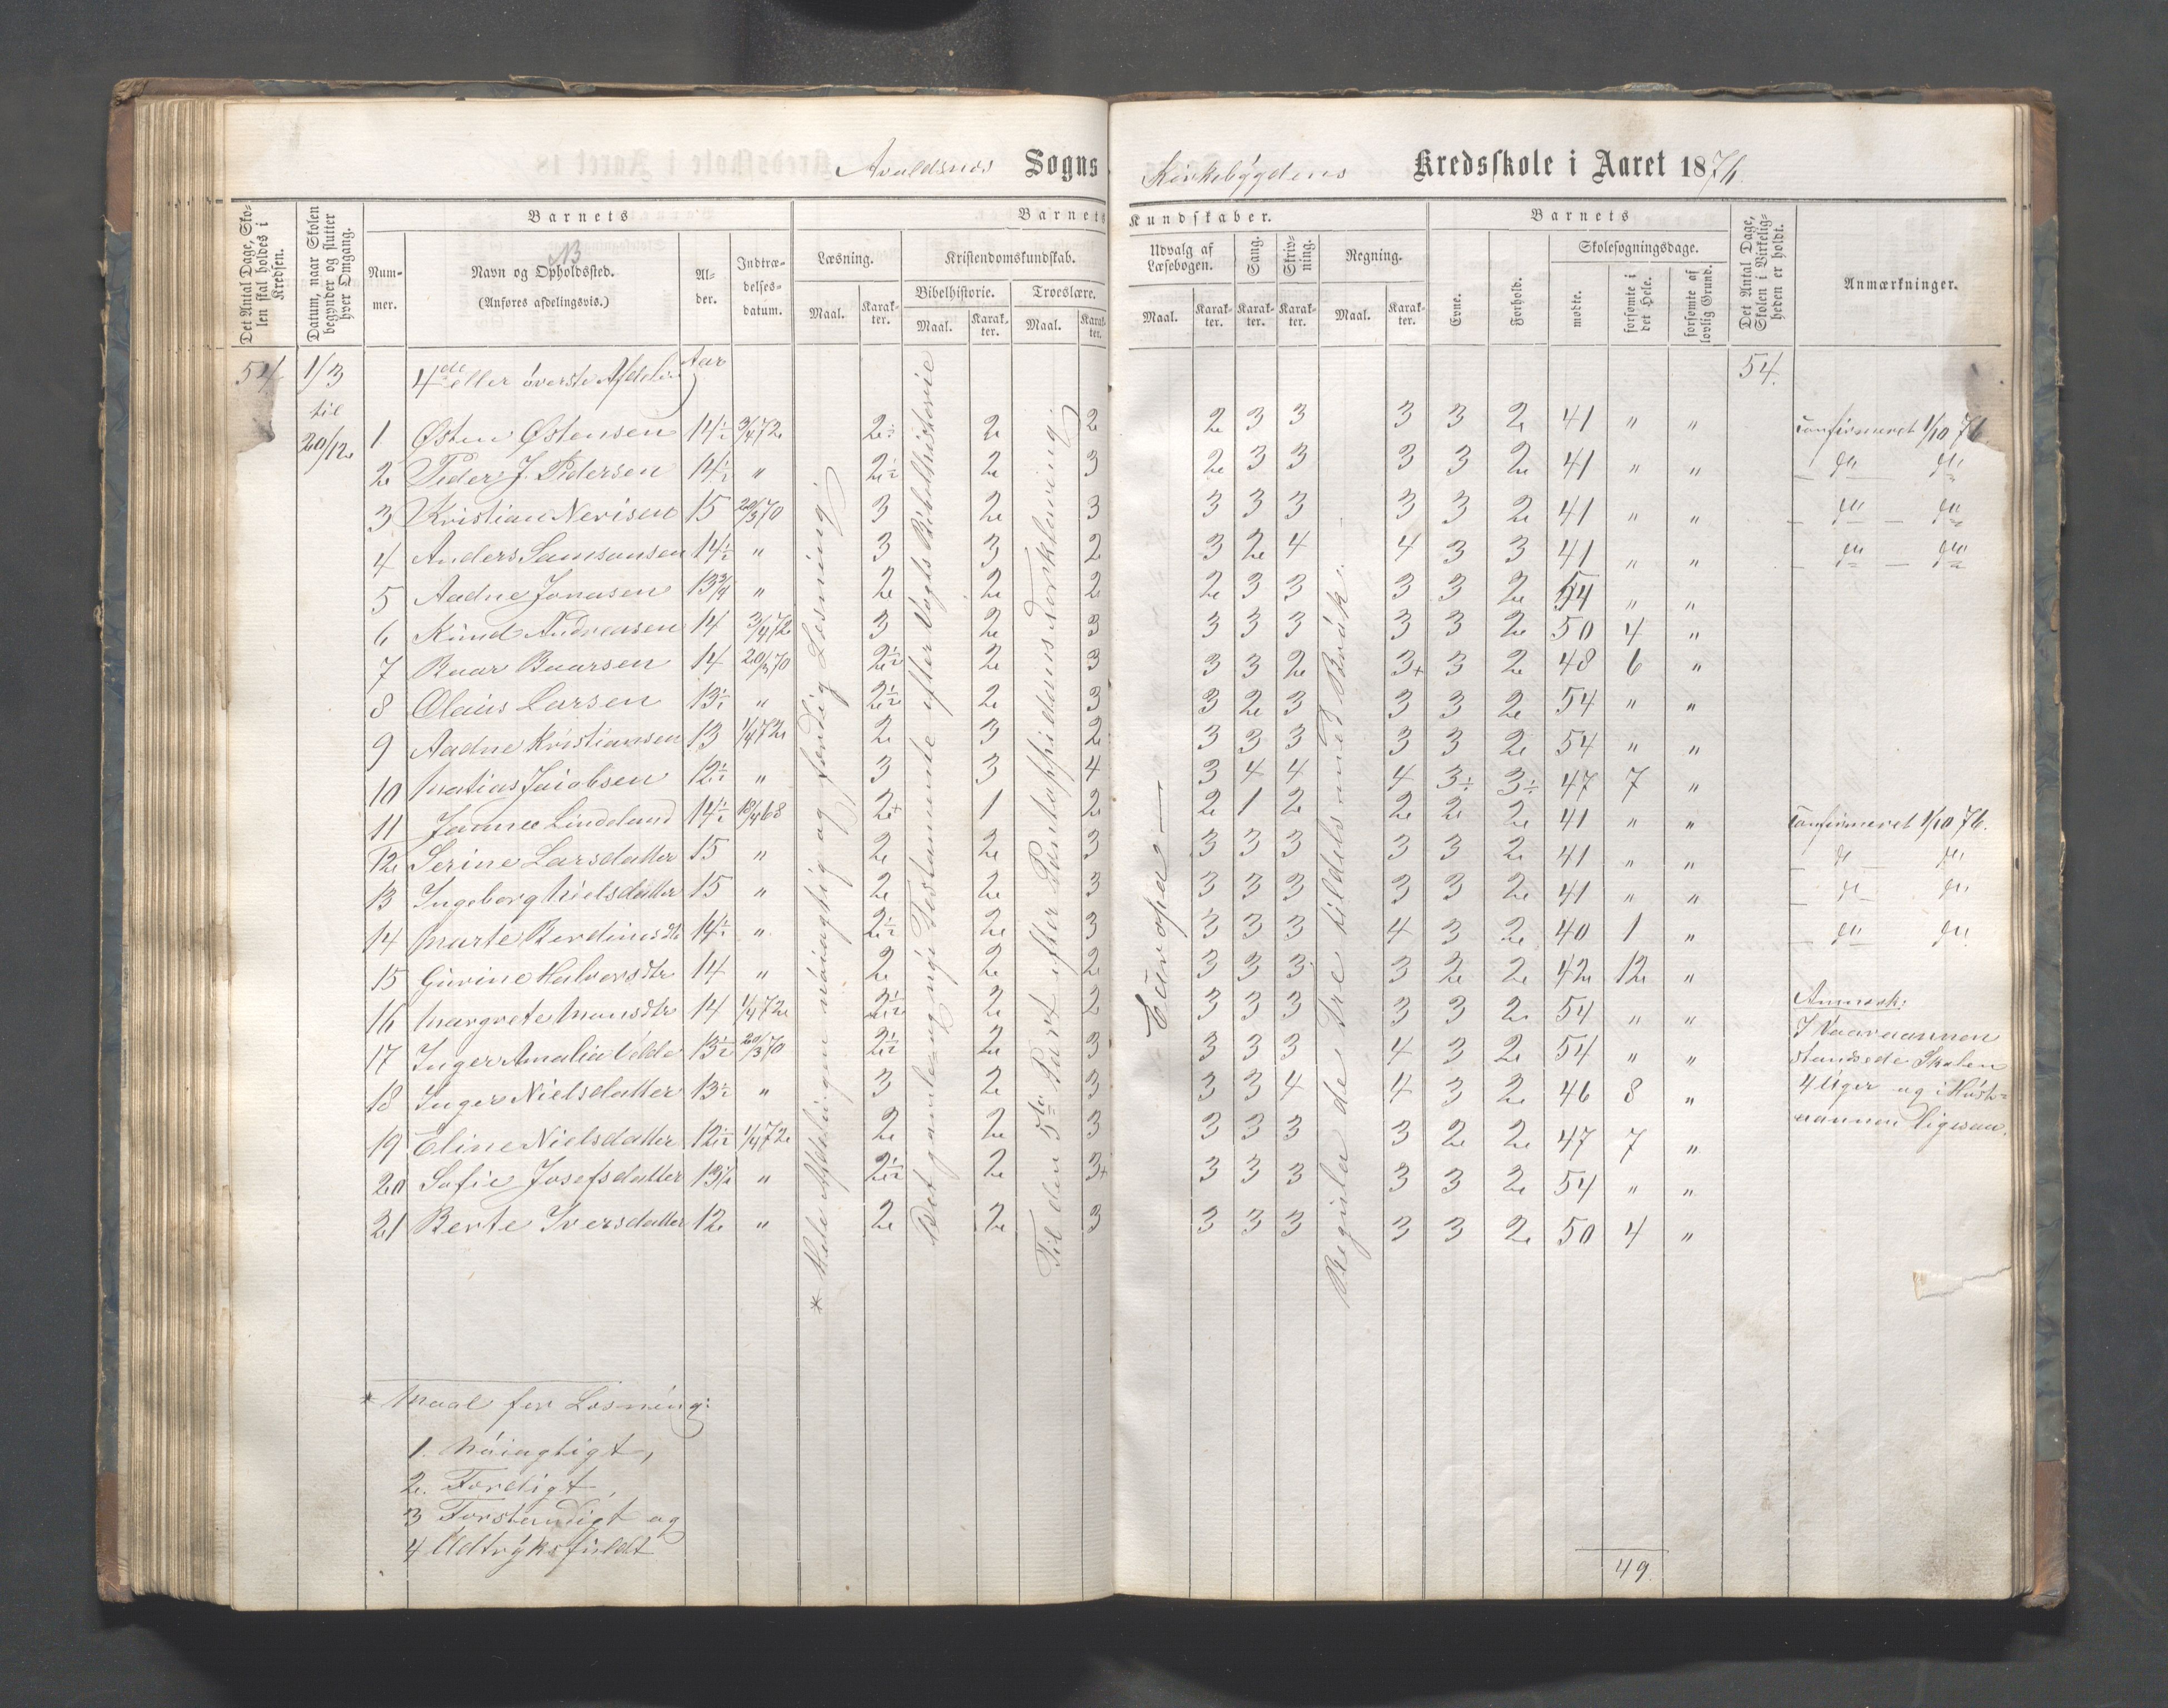 Avaldsnes Sogns Kirkebygdens Kredsskole i Aaret 1876.
Det Antal Dage, Skolen skal holdes i Kredsen.
Datum, naar Skolen begynder og slutter hver Omgang.
Barnets
Nummer.
Navn og Opholdssted.
(Anføres afdelingsvis.)
Alder.
Indtrædelsesdatum.
Barnets Kundskaber.
Læsning.
Maal. Karakter.
Kristendomskundskab.
Bibelhistorie.
Maal. Karakter.
Troeslære.
Maal. Karakter.
Udvalg af Læsebogen.
Maal. Karakter.
Sang.
Karakter.
Skrivning.
Karakter.
Regning.
Maal. Karakter.
Barnets
Evne.
Forhold.
Skolesøgningsdage.
mødte.
forsømte i det Hele.
forsømte af lovlig Grund.
Det Antal Dage, Skolen i Virkeligheden er holdt.
Anmærkninger.
54 1/3 til 20/12 4de eller øverste Afdelin Aar 54.
1 Østen Østensen 14½ 3/4 72 2÷ 2 2 2 3 3 3 3 2 41 " " Confirmeret 1/10 76.
2 Peder J. Pedersen 14½ " 2½ 2 3 2 3 3 3 3 2 41 " " do do
3 Kristian Nerisen 15 20/3 70 3 2 3 3 3 3 3 3 2 41 " " do do
4 Anders Samsonsen 14½ " 3 3 2 3 2 4 4 3 3 41 " " do do
5 Aadne Jonasen 13¾ " 2 2 2 2 3 3 3 3 2 54 " "
6 Knud Andreasen 14 3/4 72 3 2 3 3 3 3 3 3 2 50 4 "
7 Baar Baarsen 14 20/3 70 2½ 2 3 3 3 2 3+ 3 2 48 6 "
8 Olaus Larsen 13½ " 2½ 2 3 3 2 3 3 3 2 54 " "
9 Aadne Kristiansen 13 1/4 72 2 3 2 3 3 3 3 3 2 54 " "
10 Matias Jacobsen 12½ " 3 3 4 3 4 4 4 3÷ 3÷ 47 7 "
11 Janne Lindeland 14½ 18/4 68 2+ 1 2 2 1 2 2 2 2 41 " " Confirmeret 1/10 76.
12 Serine Larsdatter 15 " 2 2 3 3 3 3 3 3 2 41 " " do do
13 Ingeborg Nielsdatter 15 " 2 2 3 3 3 3 3 3 2 41 " " do do
14 Marte Berdinesdtr 14½ " 2½ 2 3 3 3 3 4 3 2 40 1 " do do
15 Gurine Halvorsdtr 14 " 2 2 2 3 3 3 3 2 2 42 12 "
16 Margrete Monsdtr 14 1/4 72 2½ 2 2 3 3 3 3 3 2 54 " "
17 Inger Amalia Velde 13½ 20/3 70 2½ 2 3 3 3 3 4 3 2 54 " "
18 Inger Nielsdatter 13½ " 3 2 3 3 3 4 4 3 2 46 8 "
19 Eline Nielsdatter 12½ 1/4 72 2 2 3 3 3 3 3 2 2 47 7 "
20 Sofie Josefsdatter 13½ " 2½ 2 3+ 3 3 3 3 3 2 54 " "
21 Berte Iversdatter 12 " 2 2 3 3 3 3 3 3 2 50 4 "
* Hele Afdelingen nøiagtig og færdig Læsning.
Det gamle og nye Testamente efter Vogts Bibelhistorie
Til den 5te Part efter Pontoppidans Forklaring.
Europa
Regula de Tre tildels med Brøk.
Anmærk:
I Vaaraannen
standsede Skolen
4 Uger og i Høst=
aannen ligesaa.
* Maal for Læsning:
1. Nøiagtigt,
2. Færdigt,
3 Forstandigt og
4 Udtryksfuldt
49.